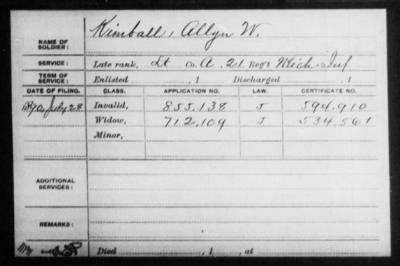 NAME OF SOLDIER: Kimball, Allyn W.
SERVICE: Late rank, Lt Co. A, 21 Reg't Mich. Inf
TERM OF SERVICE: Enlisted , 1 Discharged , 1
DATE OF FILING. CLASS. APPLICATION NO. LAW. CERTIFICATE NO.
July 28 Invalid, 855,138 J 594,910
Widow, 712,109 J 534,561
Minor,
ADDITIONAL SERVICES:
REMARKS:
Died , 1 , at